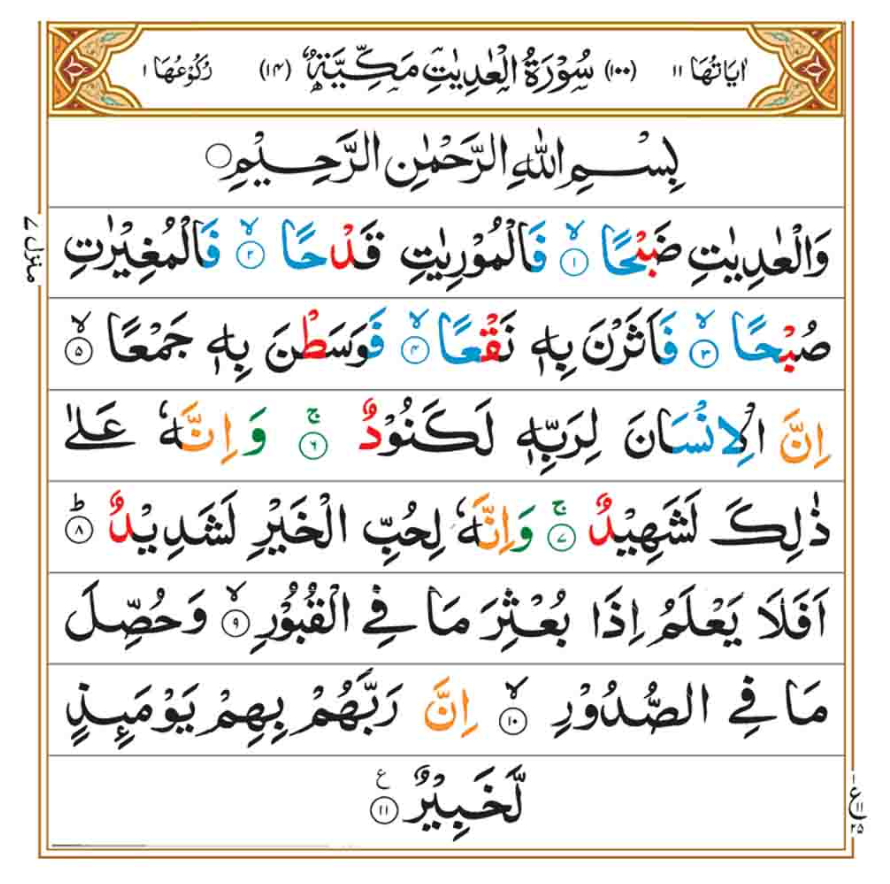 اٰيَاتُهَا ١١ (١٠٠) سُوْرَةُ الْعٰدِيٰتِ مَكِّيَّةٌ (١٤) رُكُوْعُهَا ١
بِسْمِ اللّٰهِ الرَّحْمٰنِ الرَّحِيْمِ
وَالْعٰدِيٰتِ ضَبْحًا ۙ‏﴿۱﴾ فَالْمُوْرِيٰتِ قَدْحًا ۙ‏﴿۲﴾ فَالْمُغِيْرٰتِ
صُبْحًا ۙ‏﴿۳﴾ فَاَثَرْنَ بِهٖ نَقْعًا ۙ‏﴿۴﴾ فَوَسَطْنَ بِهٖ جَمْعًا ۙ‏﴿۵﴾
اِنَّ الْاِنْسَانَ لِرَبِّهٖ لَكَنُوْدٌ ۚ‏﴿۶﴾ وَاِنَّهٗ عَلٰى
ذٰلِكَ لَشَهِيْدٌ ۚ‏﴿۷﴾ وَاِنَّهٗ لِحُبِّ الْخَيْرِ لَشَدِيْدٌ ؕ‏﴿۸﴾
اَفَلَا يَعْلَمُ اِذَا بُعْثِرَ مَا فِى الْقُبُوْرِ ۙ‏﴿۹﴾ وَحُصِّلَ
مَا فِى الصُّدُوْرِ ۙ‏﴿۱۰﴾ اِنَّ رَبَّهُمْ بِهِمْ يَوْمَىِٕذٍ
لَّخَبِيْرٌ ع ﴿۱۱﴾
منزل ٧
١
ع
١١
٢٥